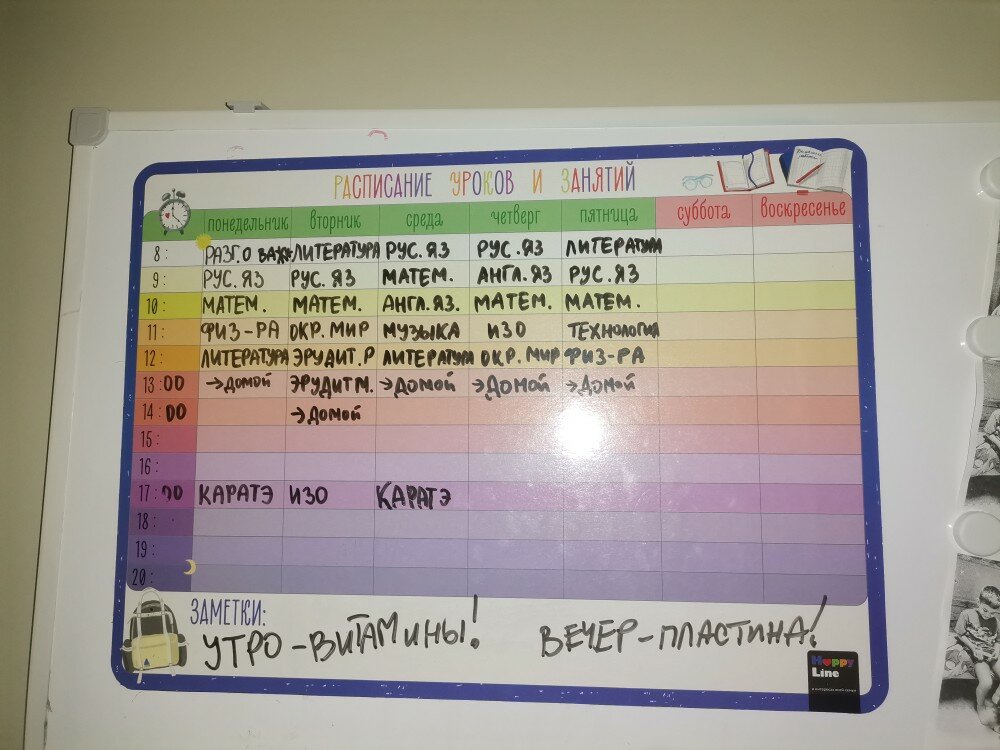 РАСПИСАНИЕ УРОКОВ И ЗАНЯТИЙ
понедельник вторник среда четверг пятница суббота воскресенье
8: РАЗГ.О ВАЖ ЛИТЕРАТУРА РУС.ЯЗ РУС.ЯЗ ЛИТЕРАТУРА
9: РУС.ЯЗ РУС.ЯЗ МАТЕМ. АНГЛ.ЯЗ РУС.ЯЗ
10: МАТЕМ. МАТЕМ. АНГЛ.ЯЗ. МАТЕМ. МАТЕМ.
11: ФИЗ-РА ОКР.МИР МУЗЫКА ИЗО ТЕХНОЛОГИЯ
12: ЛИТЕРАТУРА ЭРУДИТ.Р ЛИТЕРАТУРА ОКР.МИР ФИЗ-РА
13:00 →ДОМОЙ ЭРУДИТ М. →ДОМОЙ →ДОМОЙ →ДОМОЙ
14:00 →ДОМОЙ
15:
16:
17:00 КАРАТЭ ИЗО КАРАТЭ
18:
19:
20:
ЗАМЕТКИ:
УТРО-ВИТАМИНЫ! ВЕЧЕР-ПЛАСТИНА!
Happy
Line